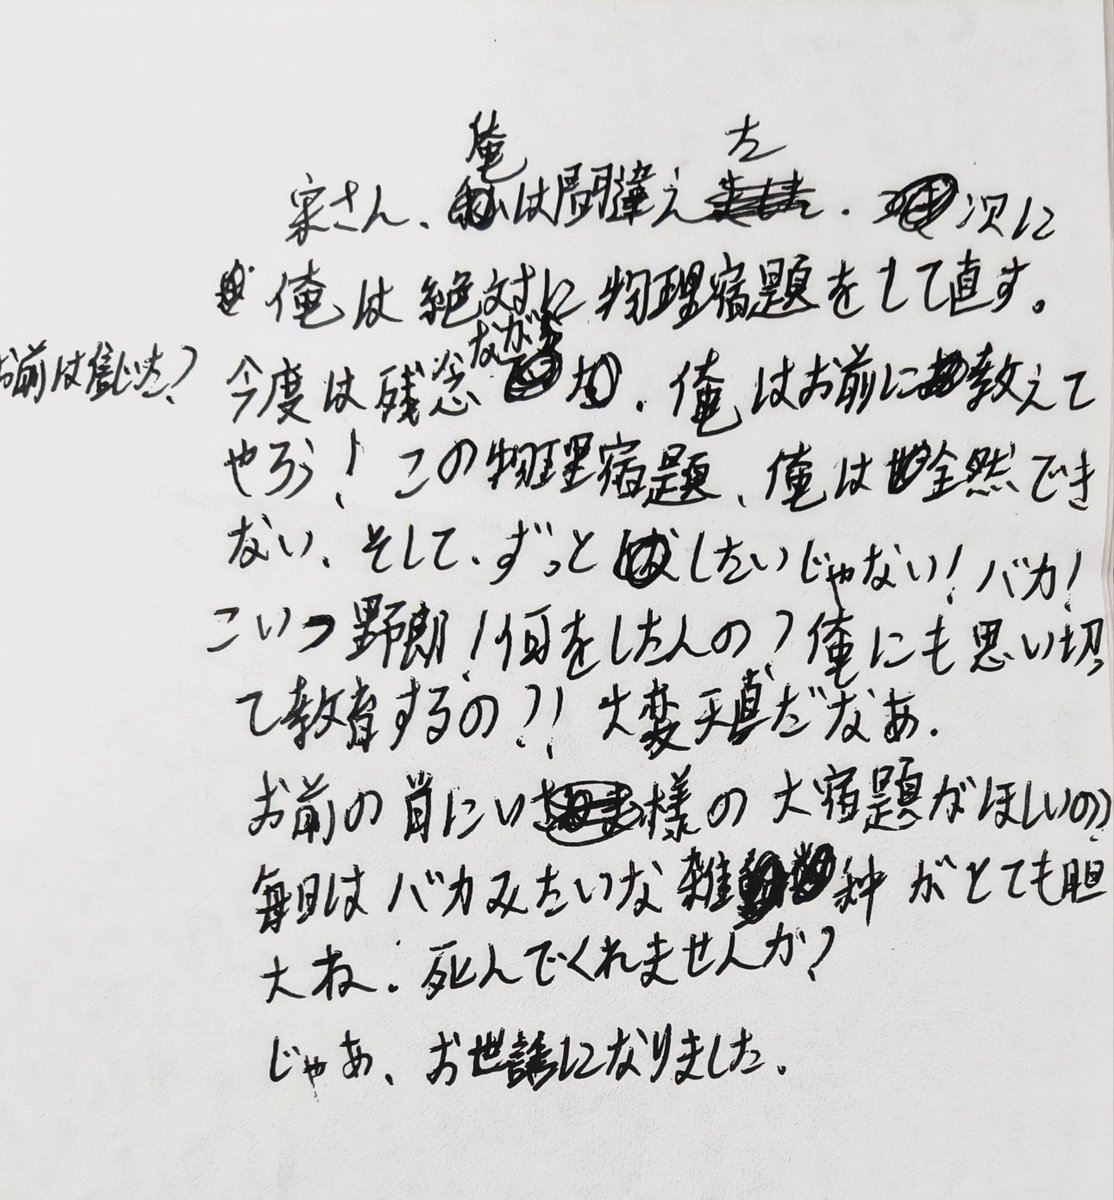 宋さん、俺は間違えた. 次に
俺は絶対に物理宿題をして直す。
お前は信じた?
今度は残念ながら、俺はお前に教えて
やろう！この物理宿題、俺は全然でき
ない、そして、ずっとしたいじゃない！バカ！
こいつ野郎！何をしたんの？俺にも思い切っ
て教育するの？！大変天真だなあ.
お前の首にい様の大宿題がほしいの？
毎日はバカみたいな雑种がとても胆
大ね. 死んでくれませんか？
じゃあ、お世誘になりました.